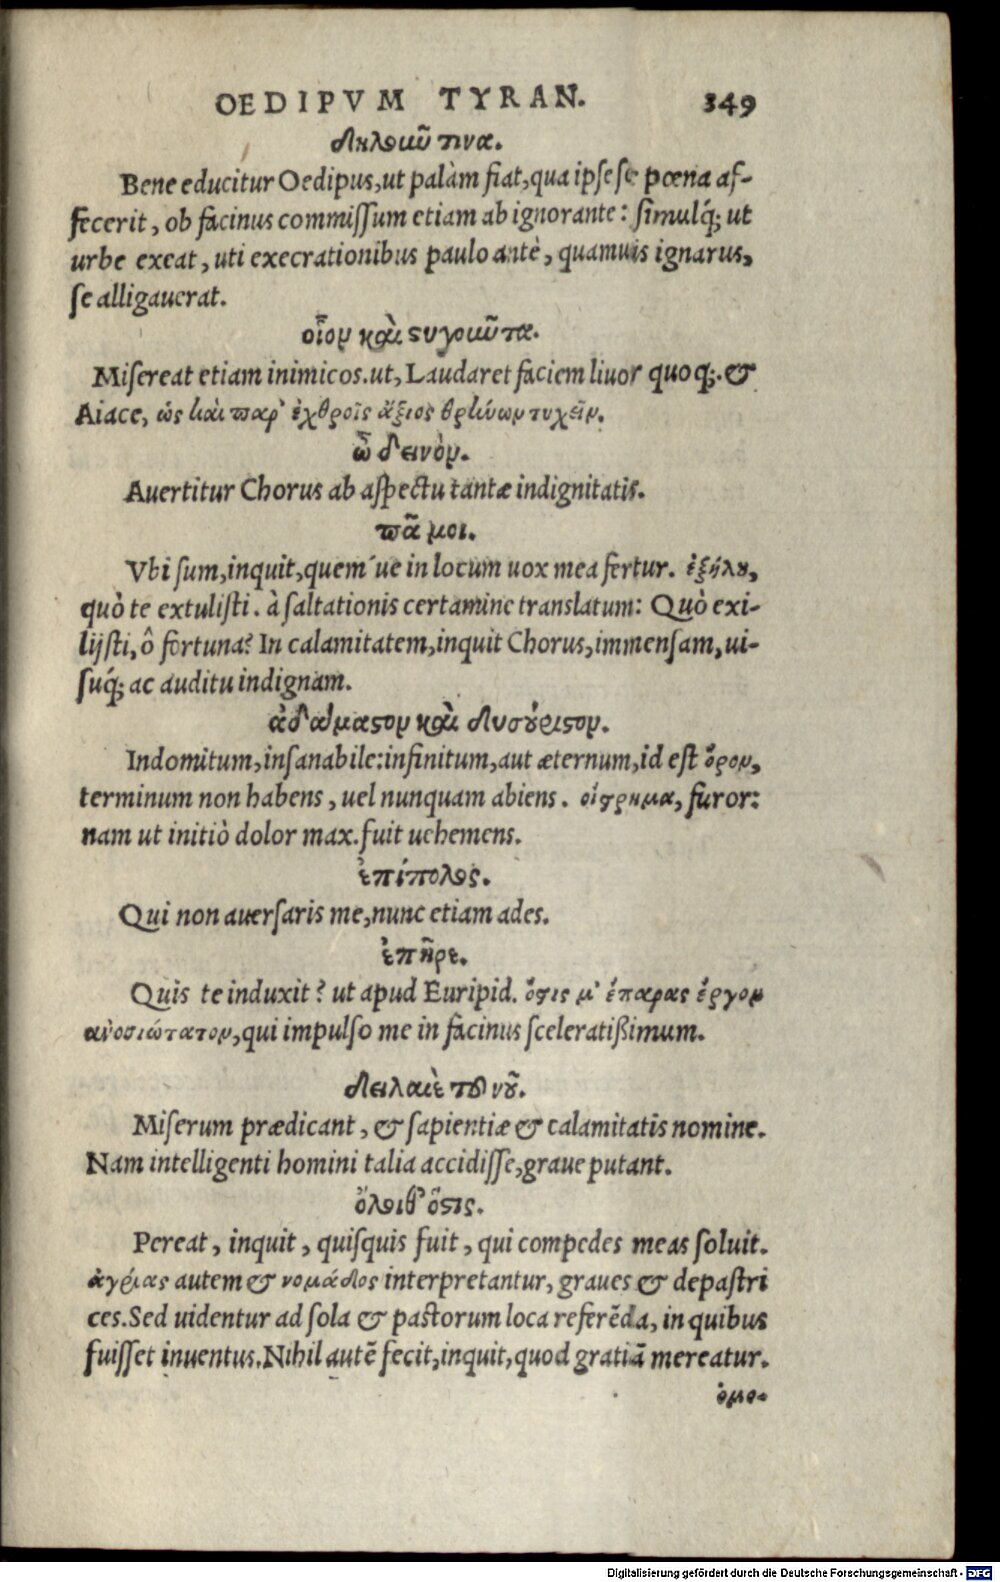 OEDIPVM TYRAN. 349
δηλοῦν τινα.
Bene educitur Oedipus, ut palàm fiat, qua ipse se pœna af-
fecerit, ob facinus commissum etiam ab ignorante: simulq́; ut
urbe exeat, uti execrationibus paulo antè, quamuis ignarus,
se alligauerat.
οἷον καὶ στυγοῦντα.
Misereat etiam inimicos. ut, Laudaret faciem liuor quoq;. &
Aiace, ὡς καὶ παρ' ἐχθροῖς ἄξιος θρήνων τυχεῖν.
ὦ δεινὸν.
Auertitur Chorus ab aspectu tantæ indignitatis.
πᾶ μοι.
Vbi sum, inquit, quem´ue in locum uox mea fertur. ἐξήλου,
quò te extulisti. à saltationis certamine translatum: Quò exi-
lijsti, ô fortuna? In calamitatem, inquit Chorus, immensam, ui-
suq́; ac auditu indignam.
ἀδάμαστον καὶ δυσούριστον.
Indomitum, insanabile: infinitum, aut æternum, id est ὅρον,
terminum non habens, uel nunquam abiens. οἴστρημα, furor:
nam ut initiò dolor max. fuit uehemens.
ἐπίπολος.
Qui non auersaris me, nunc etiam ades.
ἐπῆρε.
Quis te induxit? ut apud Euripid. ὅστις μ' ἐπαρας ἔργον
ανοσιώτατον, qui impulso me in facinus sceleratißimum.
δείλαιε τοῦ νοῦ.
Miserum prædicant, & sapientiæ & calamitatis nomine.
Nam intelligenti homini talia accidisse, graue putant.
ὄλοιθ' ὅστις.
Pereat, inquit, quisquis fuit, qui compedes meas soluit.
ἀγρίας autem & νομάδος interpretantur, graues & depastri
ces. Sed uidentur ad sola & pastorum loca referẽda, in quibus
fuisset inuentus. Nihil autẽ fecit, inquit, quod gratiã mereatur.
ὁμο-
Digitalisierung gefördert durch die Deutsche Forschungsgemeinschaft - DFG